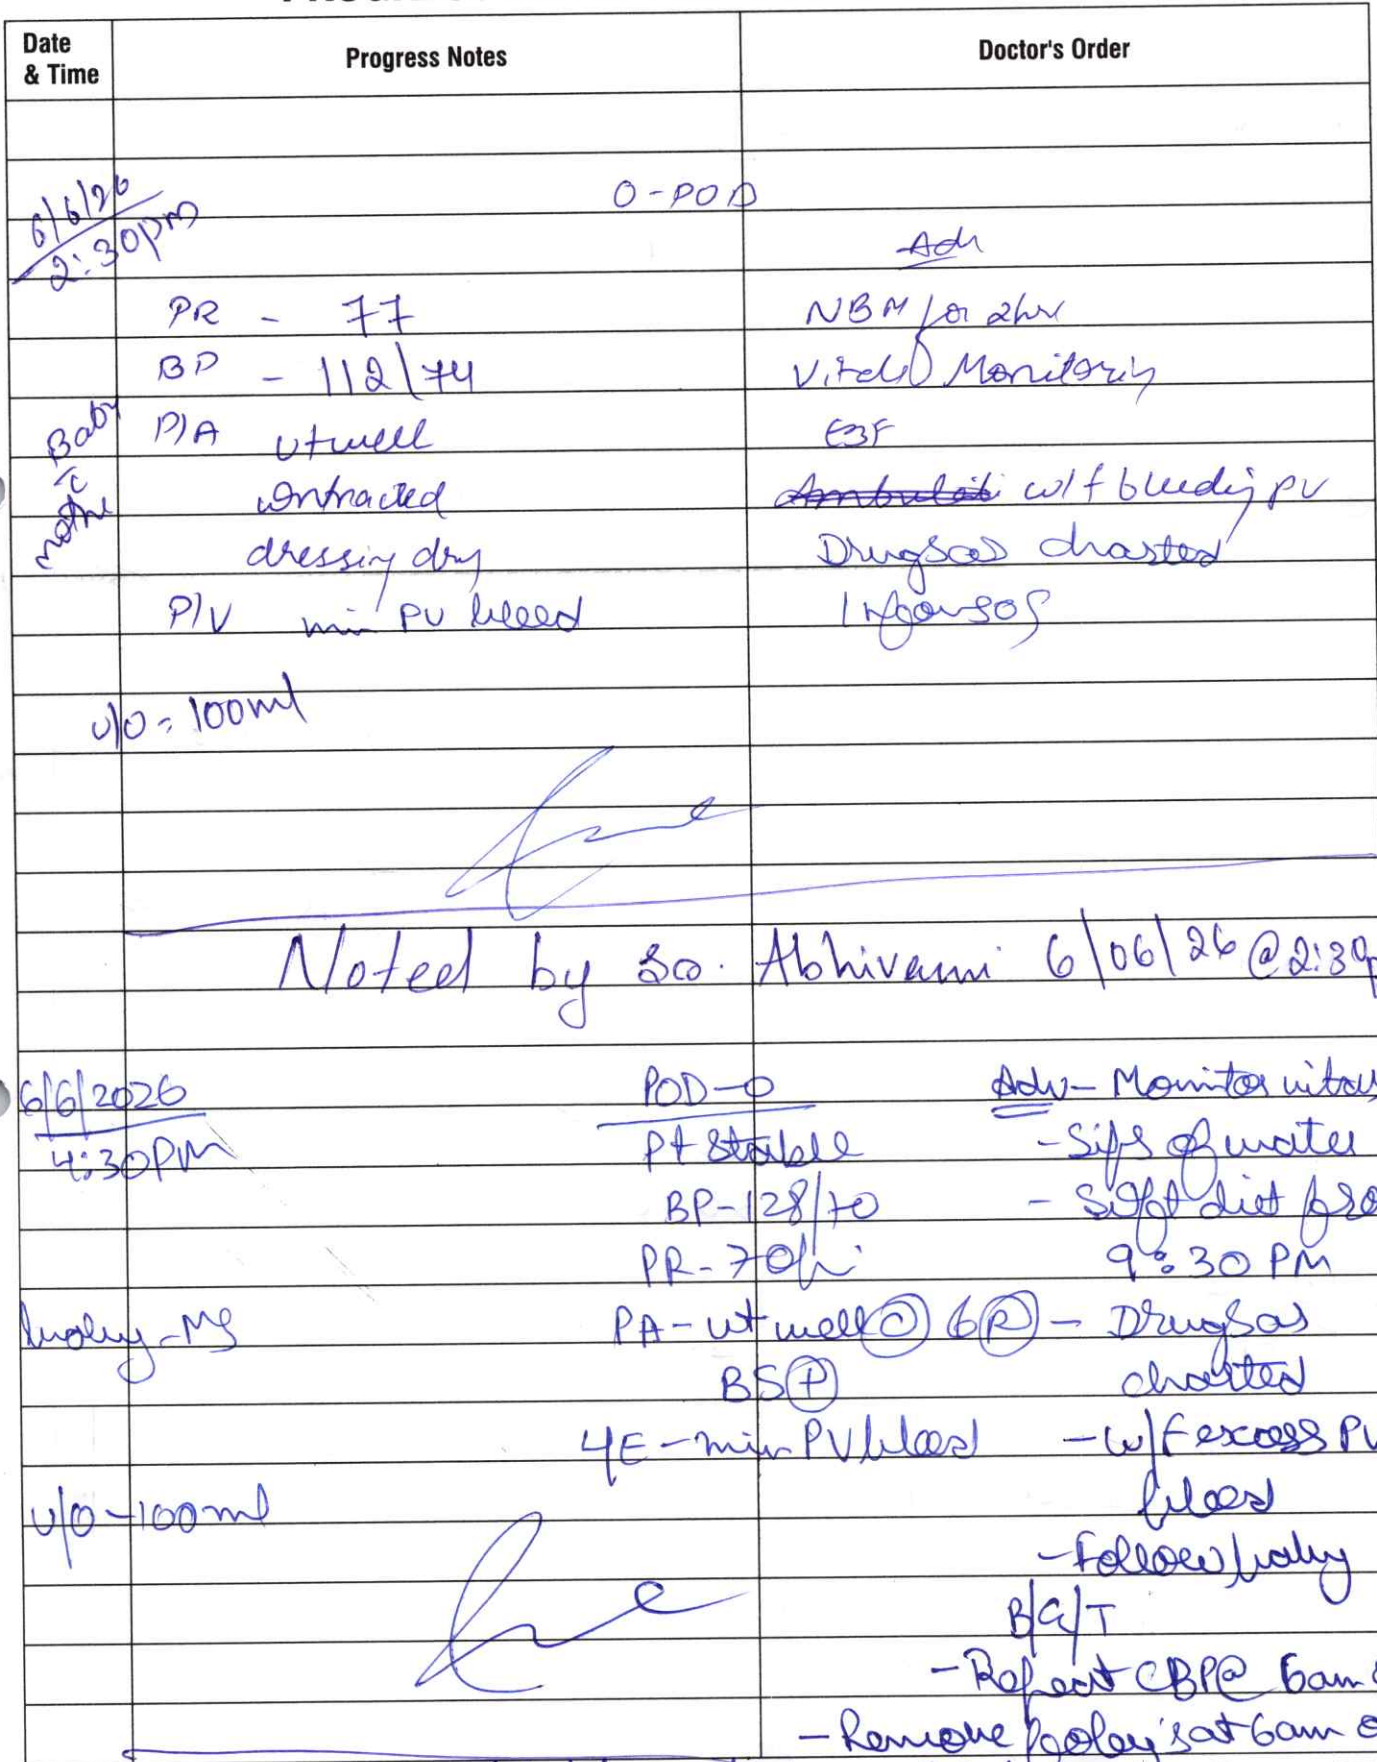 Date & Time Progress Notes Doctor's Order
6/6/26
2:30pm
O-POD
Adv
PR - 77 NBM for 2hr
BP - 112/74 Vitals Monitoring
Baby c̄ mother
P/A ut well EBF
contracted Ambulati w/f bleeding PV
dressing dry Drugs as charted
P/V min PV bleed Inform SOS
U/O = 100ml
Noted by Abhivami 6/06/26 @ 2:30p
6/6/2026 POD-0 Adv - Monitor vitals
4:30PM Pt Stable - Sips of water
BP-128/70 - Soft diet fro
PR-70/ 9:30 PM
baby-MS PA-ut well C R - Drugs as
BS P charted
min PV bleed - w/f excess PV
bleed
U/O-100ml
- Follow baby
B/G/T
- Repeat CBP @ 6am
- Remove foley's at 6am